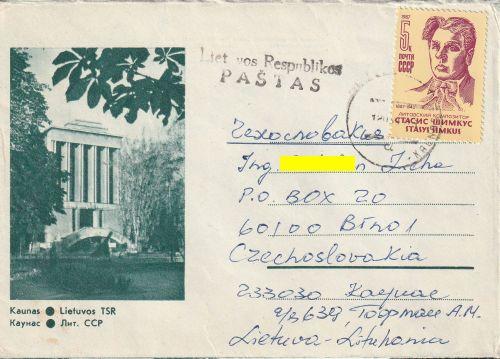 Lietuvos Respublikos
PAŠTAS
1987
5к
ПОЧТА
СССР
1887-1943
ЛИТОВСКИЙ КОМПОЗИТОР
СТАСИС ШИМКУС
STASYS ŠIMKUS
Чехословакия
Ing
P.O. BOX 20
60100 BRNO 1
Czechoslovakia
233030 Каунас
а/я 639, А.М.
Lietuva-Lithuania
Kaunas ● Lietuvos TSR
Каунас ● Лит. ССР